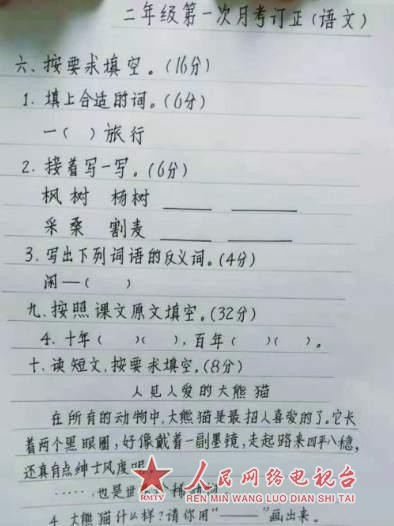 二年级第一次月考订正(语文)
六、按要求填空。(16分)
1. 填上合适的词。(6分)
一( )旅行
2. 接着写一写。(6分)
枫树 杨树
采桑 割麦
3. 写出下列词语的反义词。(4分)
闲—( )
九、按照课文原文填空。(32分)
4. 十年( )( ), 百年( )( )。
十、读短文,按要求填空。(8分)
人见人爱的大熊猫
在所有的动物中,大熊猫是最招人喜爱的了。它长
着两个黑眼圈,好像戴着一副墨镜,走起路来四平八稳,
还真有点绅士风度呢
……也是世
人民网络电视台
RMTV
REN MIN WANG LUO DIAN SHI TAI
4. 大熊猫什么样?请你用"——"画出来。